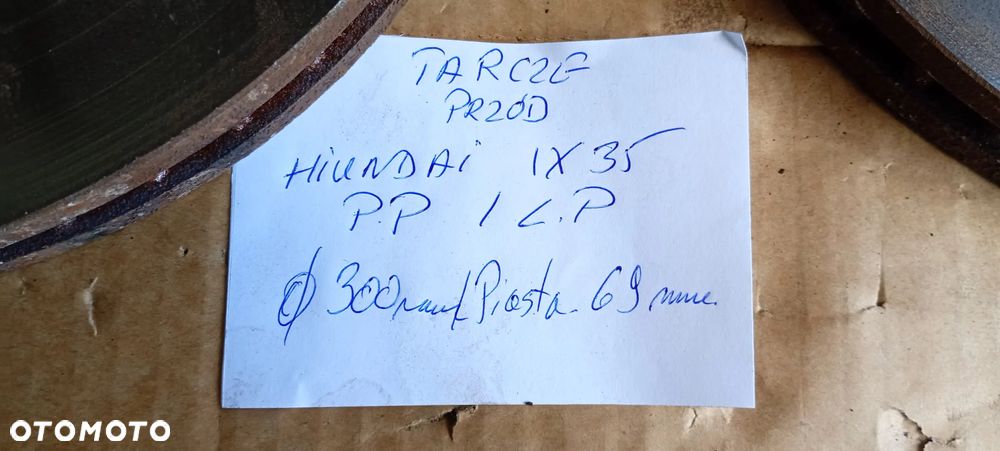 TARCZE
PRZÓD
HIUNDAI IX 35
P.P / L.P
Ø 300mm/Piasta. 69 mm.
OTOMOTO